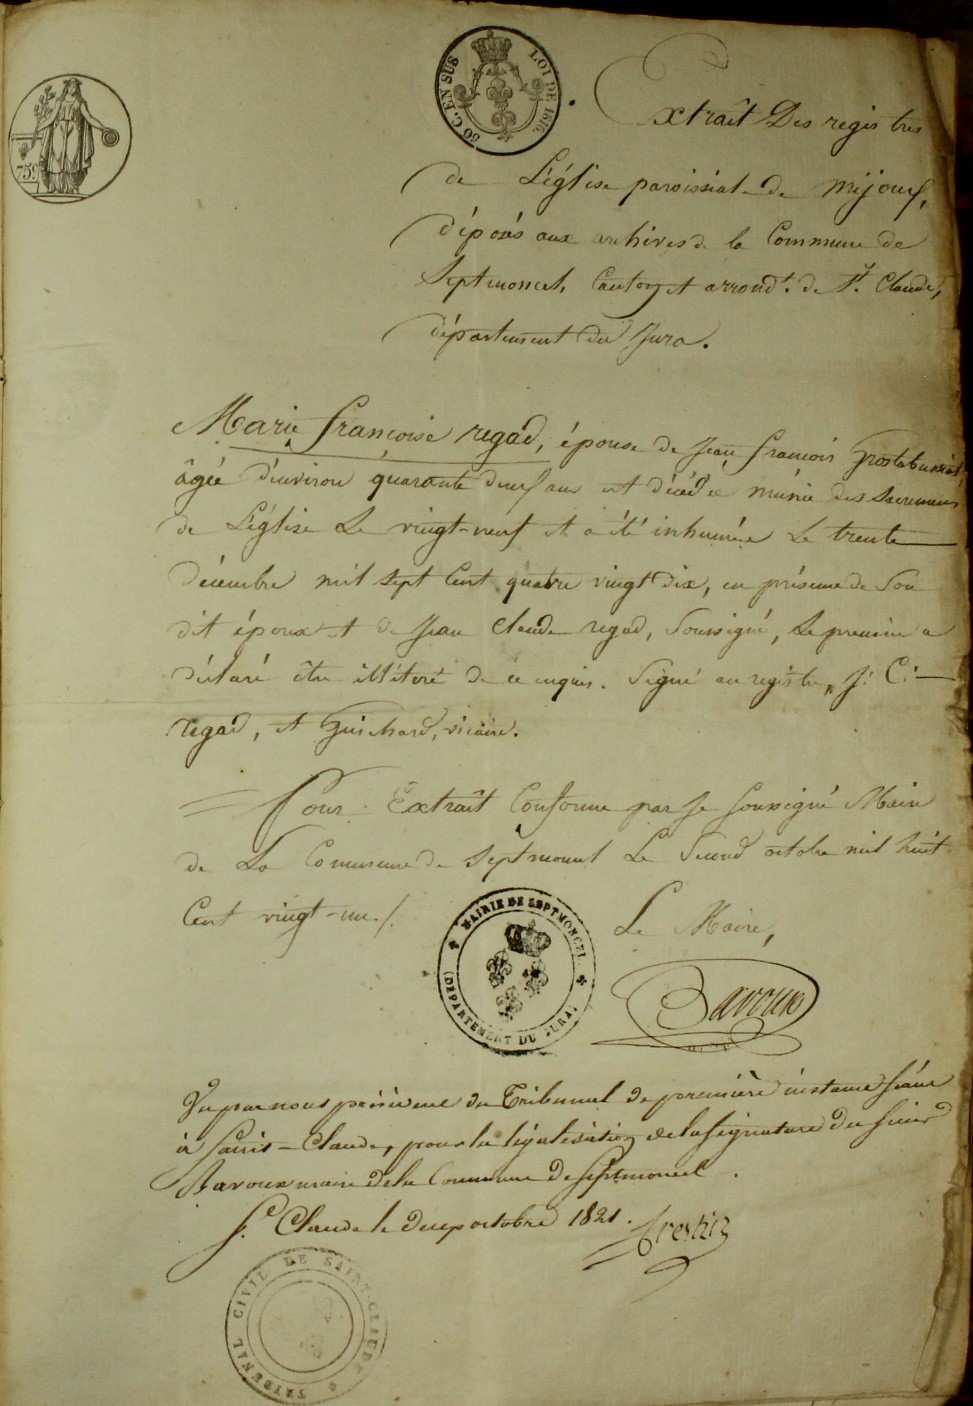 50 C. EN SUS LOI DE 1816
75c
Extrait Des registres
de L'église paroissiale de mijoux,
déposés aux archives de la Commune de
Septmoncel, Canton et arrondt. de St. Claude,
département du Jura.
Marie françoise regad, épouse de Jean françois Grosteburdiat
âgée d'environ quarante deux ans est décédée munie des sacremens
de L'église Le vingt-neuf et a été inhumée Le trente
décembre mil sept Cent quatre vingt dix, en présence de Son
dit époux et de Jean Claude regad, Soussigné, Le premier a
déclaré être illétéré de ce enquis. Signé au registre, J. C.
regad, et Guichard, vicaire.
Pour Extrait Conforme par Je soussigné Maire
de La Commune de Septmoncel Le Second octobre mil huit
Cent vingt-un./.
Le Maire,
MAIRIE DE SEPTMONCEL
(DEPARTEMENT DU JURA)
Bavoux
Vu par nous président du Tribunal de première instance séant
à Saint-Claude, pour la légalisation de la signature du sieur
Bavoux maire de la Commune de Septmoncel.
St. Claude le deux octobre 1821.
TRIBUNAL CIVIL DE SAINT-CLAUDE